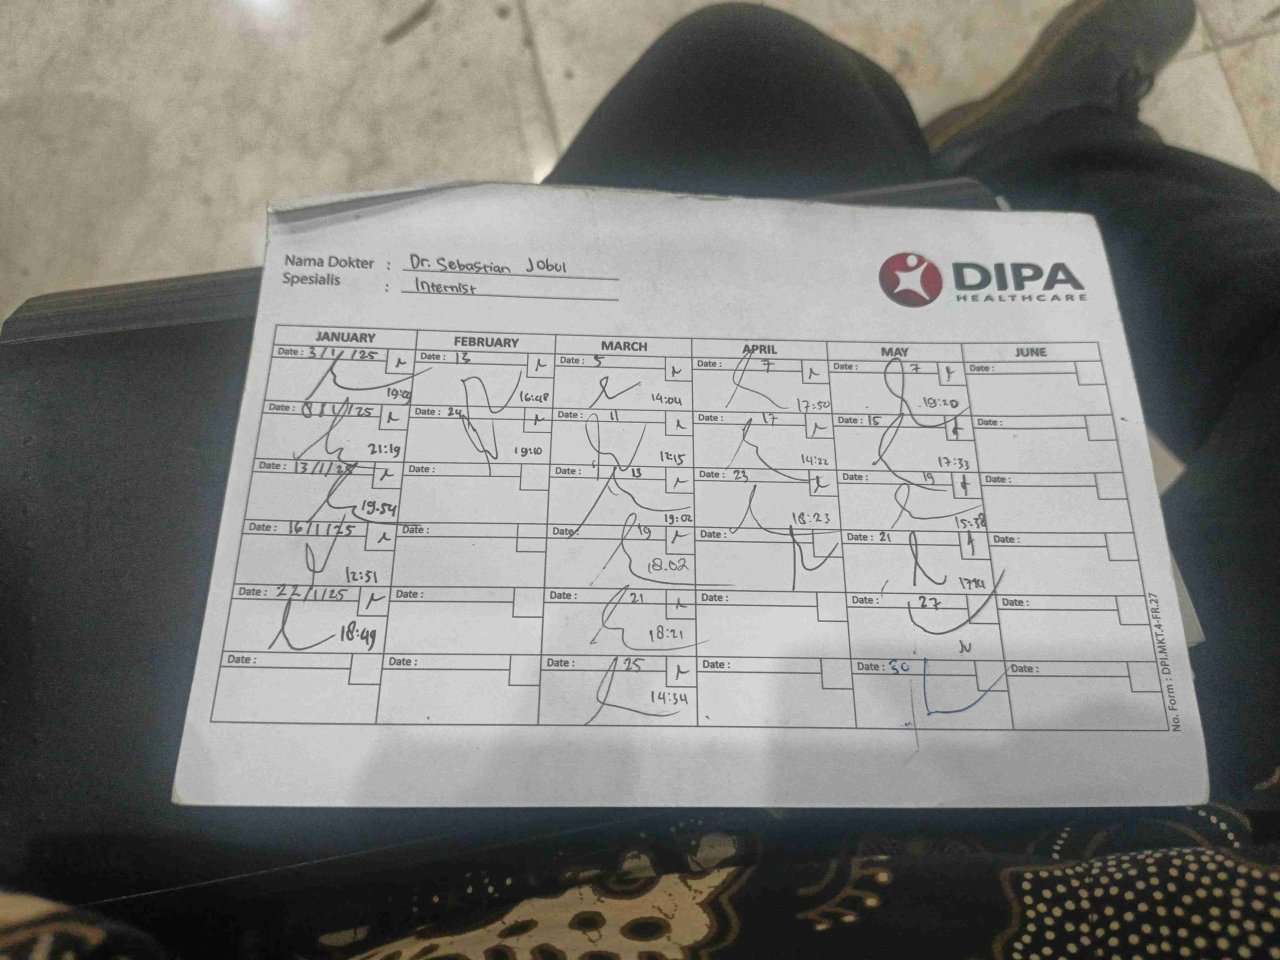 Nama Dokter : Dr. Sebastian Jobul
Spesialis : Internist
DIPA
HEALTHCARE
JANUARY FEBRUARY MARCH APRIL MAY JUNE
Date : 3/1/25 Date : 13 Date : 5 Date : 7 Date : 7 Date :
16:48 14:04 17:50 18:20
Date : 8/1/25 Date : 24 Date : 11 Date : 17 Date : 15 Date :
21:19 19:10 12:15 14:22 17:33
Date : 13/1/25 Date : Date : 13 Date : 23 Date : 19 Date :
19:54 19:02 18:23 15:38
Date : 16/1/25 Date : Date : 19 Date : Date : 21 Date :
12:51 18.02
Date : 22/1/25 Date : Date : 21 Date : Date : 27 Date :
18:49 18:21
Date : Date : Date : 25 Date : Date : 30 Date :
14:34
No. Form : DPI.MKT.4-FR.27